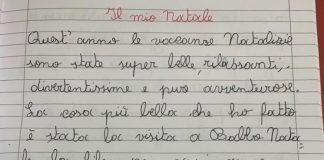 Il mio Natale
Quest' anno le vacanze Natalizie
sono state super belle, rilassanti,
divertentissime e pure avventurose.
La cosa più bella che ho fatto
è stata la visita a Babbo Nata